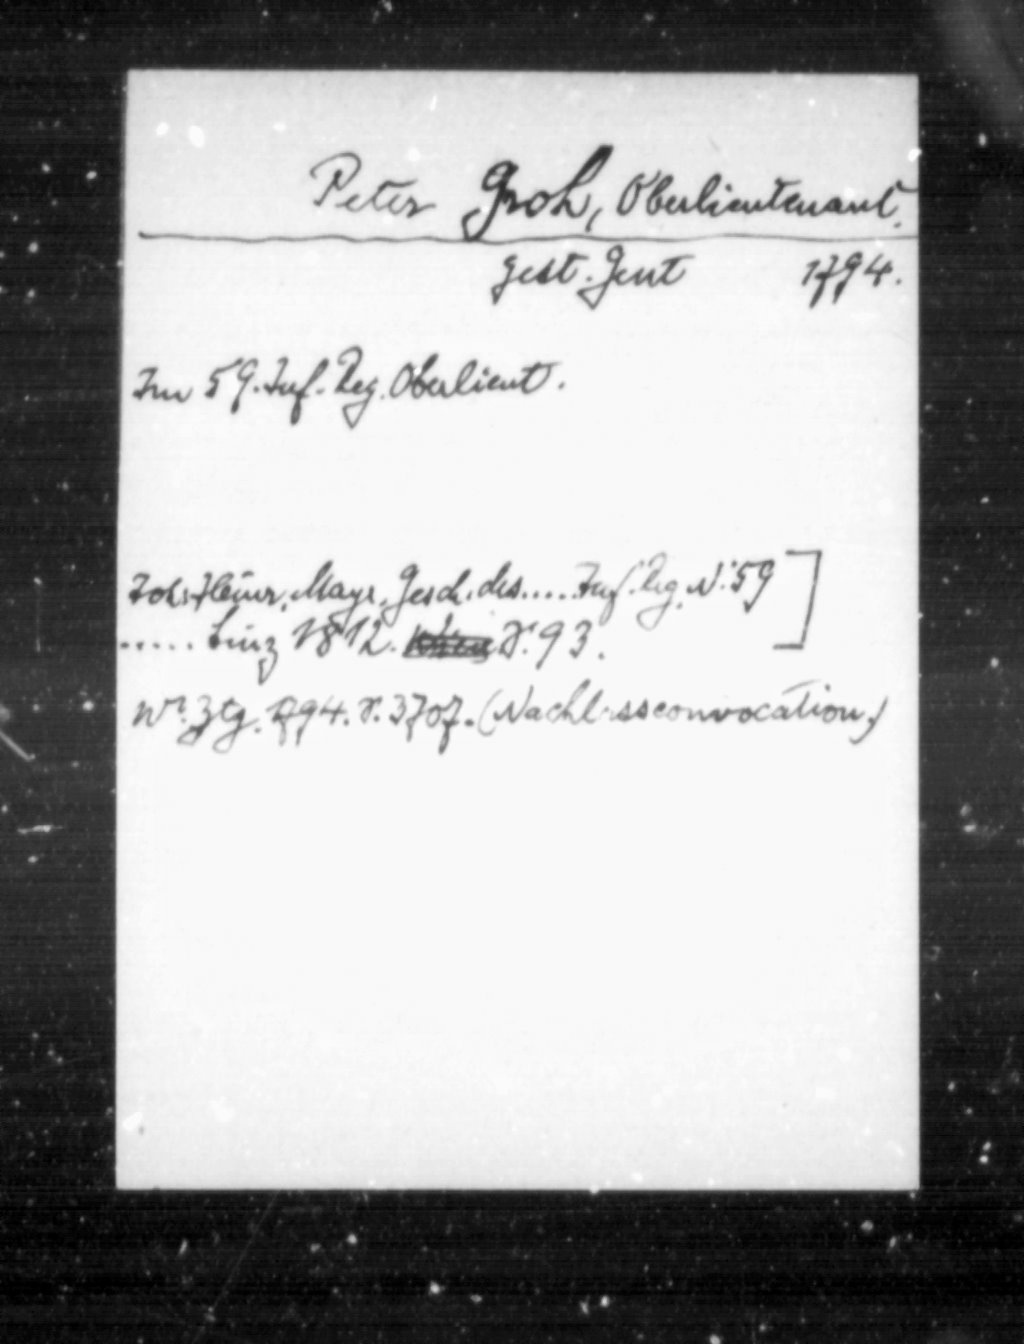 Peter Groh, Oberlieutenant.
gest. Gent 1794.
Im 59. Inf. Reg. Oberlieut.
Joh. Heinr. Mayr, Gesch. des..... Inf. Reg. N: 59]
..... Linz 1812. S. 93.
Wr. Ztg. 794. S. 3707. (Nachlassconvocation.)